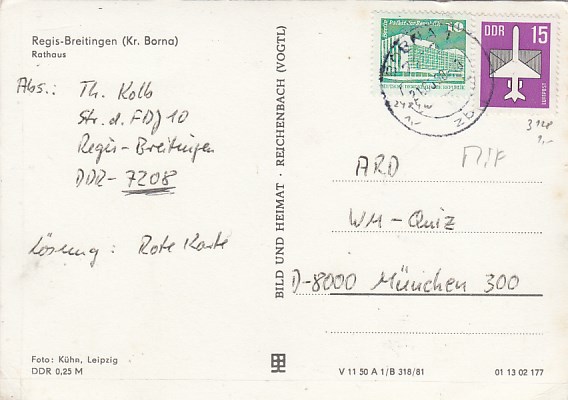 Regis-Breitingen (Kr. Borna)
Rathaus
Abs.: Th. Kolb
Str. d. FDJ 10
Regis-Breitingen
DDR-7208
Lösung: Rote Karte
Foto: Kühn, Leipzig
DDR 0,25 M
BILD UND HEIMAT · REICHENBACH (VOGTL)
10
DDR 15
3128
1,-
MIF
ARD
WM-Quiz
D-8000 München 300
V 11 50 A 1/B 318/81
01 13 02 177